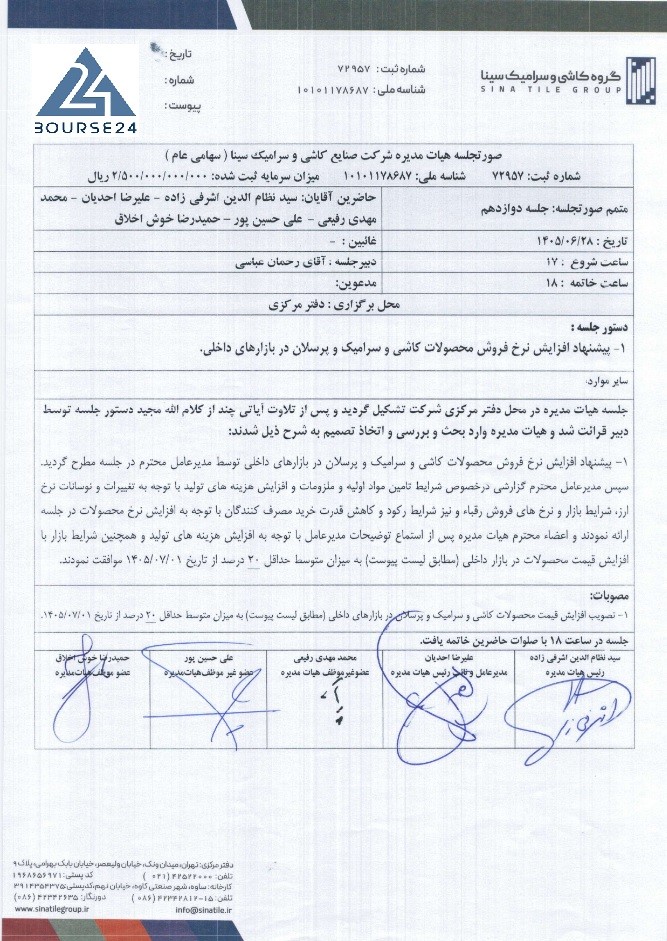 تاریخ :
شماره:
پیوست:
BOURSE24
شماره ثبت: ۷۲۹۵۷
شناسه ملی: ۱۰۱۰۱۱۷۸۶۸۷
گروه کاشی و سرامیک سینا
SINA TILE GROUP
صورتجلسه هیات مدیره شرکت صنایع کاشی و سرامیک سینا ( سهامی عام )
شماره ثبت: ۷۲۹۵۷ شناسه ملی: ۱۰۱۰۱۱۷۸۶۸۷ میزان سرمایه ثبت شده: ۲/۵۰۰/۰۰۰/۰۰۰/۰۰۰ ریال
متمم صورتجلسه: جلسه دوازدهم
حاضرین آقایان: سید نظام الدین اشرفی زاده - علیرضا احدیان - محمد
مهدی رفیعی - علی حسین پور - حمیدرضا خوش اخلاق
تاریخ : ۱۴۰۵/۰۶/۲۸
غائبین : -
ساعت شروع : ۱۷
دبیرجلسه : آقای رحمان عباسی
ساعت خاتمه : ۱۸
مدعوین:
محل برگزاری : دفتر مرکزی
دستور جلسه :
۱- پیشنهاد افزایش نرخ فروش محصولات کاشی و سرامیک و پرسلان در بازارهای داخلی.
سایر موارد:
جلسه هیات مدیره در محل دفتر مرکزی شرکت تشکیل گردید و پس از تلاوت آیاتی چند از کلام الله مجید دستور جلسه توسط
دبیر قرائت شد و هیات مدیره وارد بحث و بررسی و اتخاذ تصمیم به شرح ذیل شدند:
۱- پیشنهاد افزایش نرخ فروش محصولات کاشی و سرامیک و پرسلان در بازارهای داخلی توسط مدیرعامل محترم در جلسه مطرح گردید.
سپس مدیرعامل محترم گزارشی درخصوص شرایط تامین مواد اولیه و ملزومات و افزایش هزینه های تولید با توجه به تغییرات و نوسانات نرخ
ارز، شرایط بازار و نرخ های فروش رقباء و نیز شرایط رکود و کاهش قدرت خرید مصرف کنندگان با توجه به افزایش نرخ محصولات در جلسه
ارائه نمودند و اعضاء محترم هیات مدیره پس از استماع توضیحات مدیرعامل با توجه به افزایش هزینه های تولید و همچنین شرایط بازار با
افزایش قیمت محصولات در بازار داخلی (مطابق لیست پیوست) به میزان متوسط حداقل ۲۰ درصد از تاریخ ۱۴۰۵/۰۷/۰۱ موافقت نمودند.
مصوبات:
۱- تصویب افزایش قیمت محصولات کاشی و سرامیک و پرسلان در بازارهای داخلی (مطابق لیست پیوست) به میزان متوسط حداقل ۲۰ درصد از تاریخ ۱۴۰۵/۰۷/۰۱.
جلسه در ساعت ۱۸ با صلوات حاضرین خاتمه یافت.
سید نظام الدین اشرفی زاده
رئیس هیات مدیره
علیرضا احدیان
مدیرعامل و نائب رئیس هیات مدیره
محمد مهدی رفیعی
عضو غیرموظف هیات مدیره
علی حسین پور
عضو غیر موظف هیات مدیره
حمیدرضا خوش اخلاق
عضو موظف هیات مدیره
دفتر مرکزی: تهران، میدان ونک، خیابان ولیعصر، خیابان بابک بهرامی، پلاک ۹
تلفن: ۴۲۵۲۲۰۰۰ (۰۲۱) کد پستی: ۱۹۶۸۶۵۶۹۷۱
کارخانه: ساوه، شهر صنعتی کاوه، خیابان نهم، کدپستی: ۳۹۱۴۳۵۴۳۷۵
تلفن: ۱۵-۴۲۳۴۲۸۱۲ (۰۸۶) دورنگار: ۴۲۳۴۲۶۳۵ (۰۸۶)
www.sinatilegroup.ir info@sinatile.ir